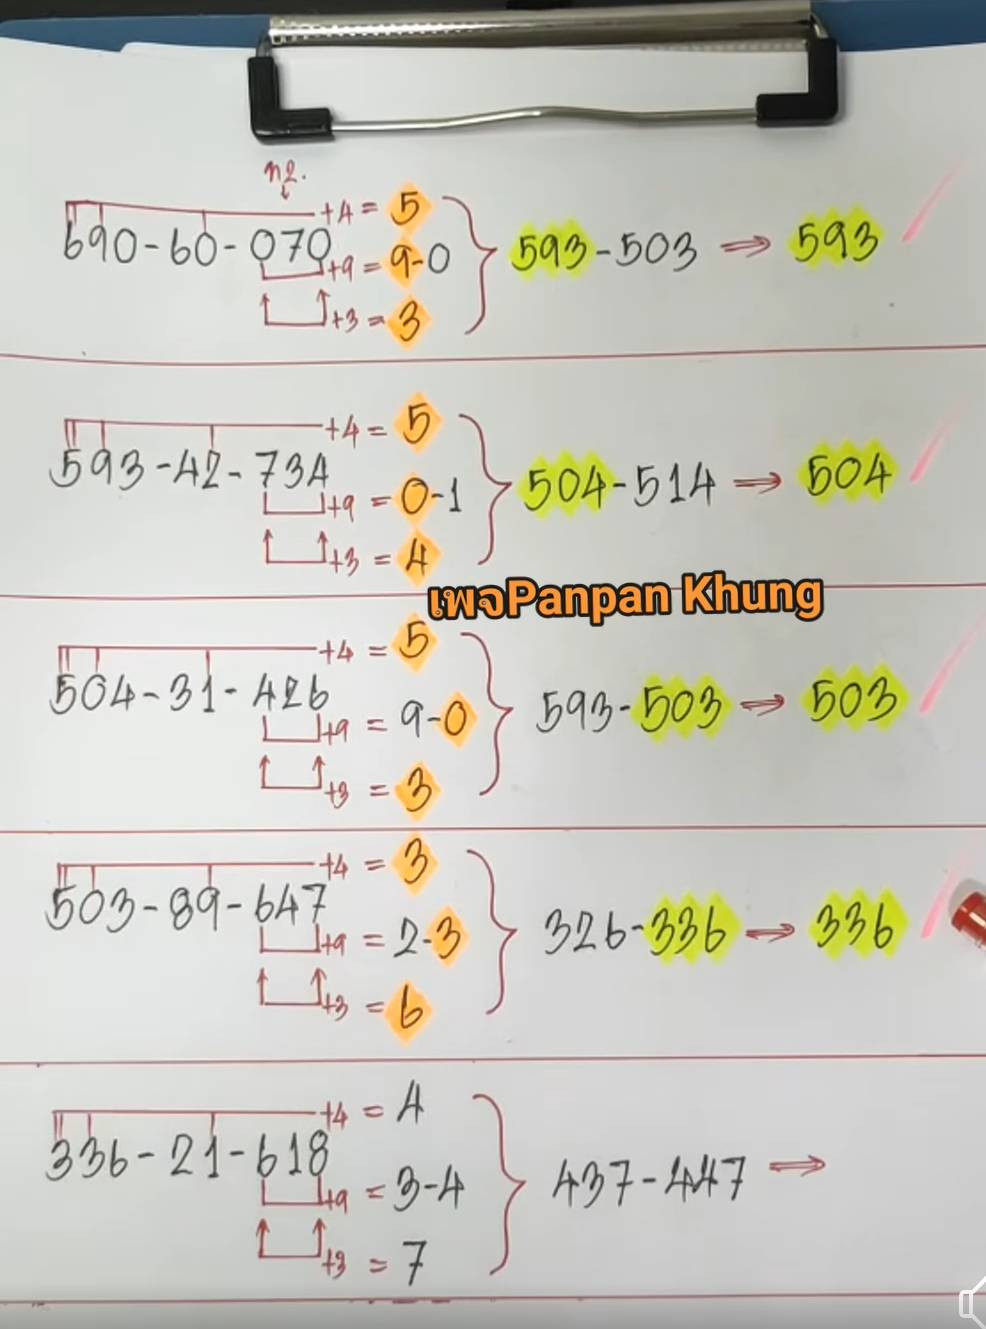 n2.
690-60-070
+4 = 5
+9 = 9-0
+3 = 3
593-503 ⇒ 593
593-42-734
+4 = 5
+9 = 0-1
+3 = 4
504-514 ⇒ 504
เพจPanpan Khung
504-31-426
+4 = 5
+9 = 9-0
+3 = 3
593-503 ⇒ 503
503-89-647
+4 = 3
+9 = 2-3
+3 = 6
326-336 ⇒ 336
336-21-618
+4 = 4
+9 = 3-4
+3 = 7
437-447 ⇒